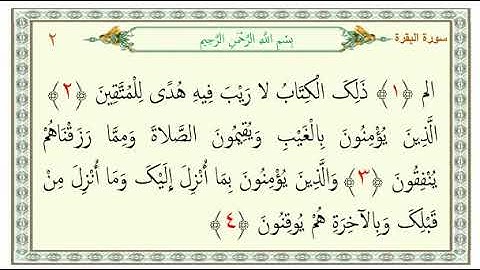 سورة البقرة بِسْمِ اللَّهِ الرَّحْمَنِ الرَّحِيمِ ٢
الم ﴿١﴾ ذَلِكَ الْكِتَابُ لا رَيْبَ فِيهِ هُدًى لِلْمُتَّقِينَ ﴿٢﴾
الَّذِينَ يُؤْمِنُونَ بِالْغَيْبِ وَيُقِيمُونَ الصَّلاةَ وَمِمَّا رَزَقْنَاهُمْ
يُنْفِقُونَ ﴿٣﴾ وَالَّذِينَ يُؤْمِنُونَ بِمَا أُنْزِلَ إِلَيْكَ وَمَا أُنْزِلَ مِنْ
قَبْلِكَ وَبِالآخِرَةِ هُمْ يُوقِنُونَ ﴿٤﴾